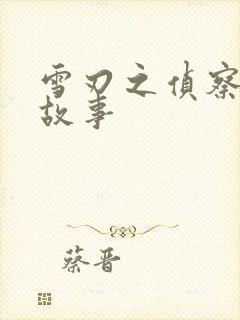 雪刃之偵察
故事
蔡晋